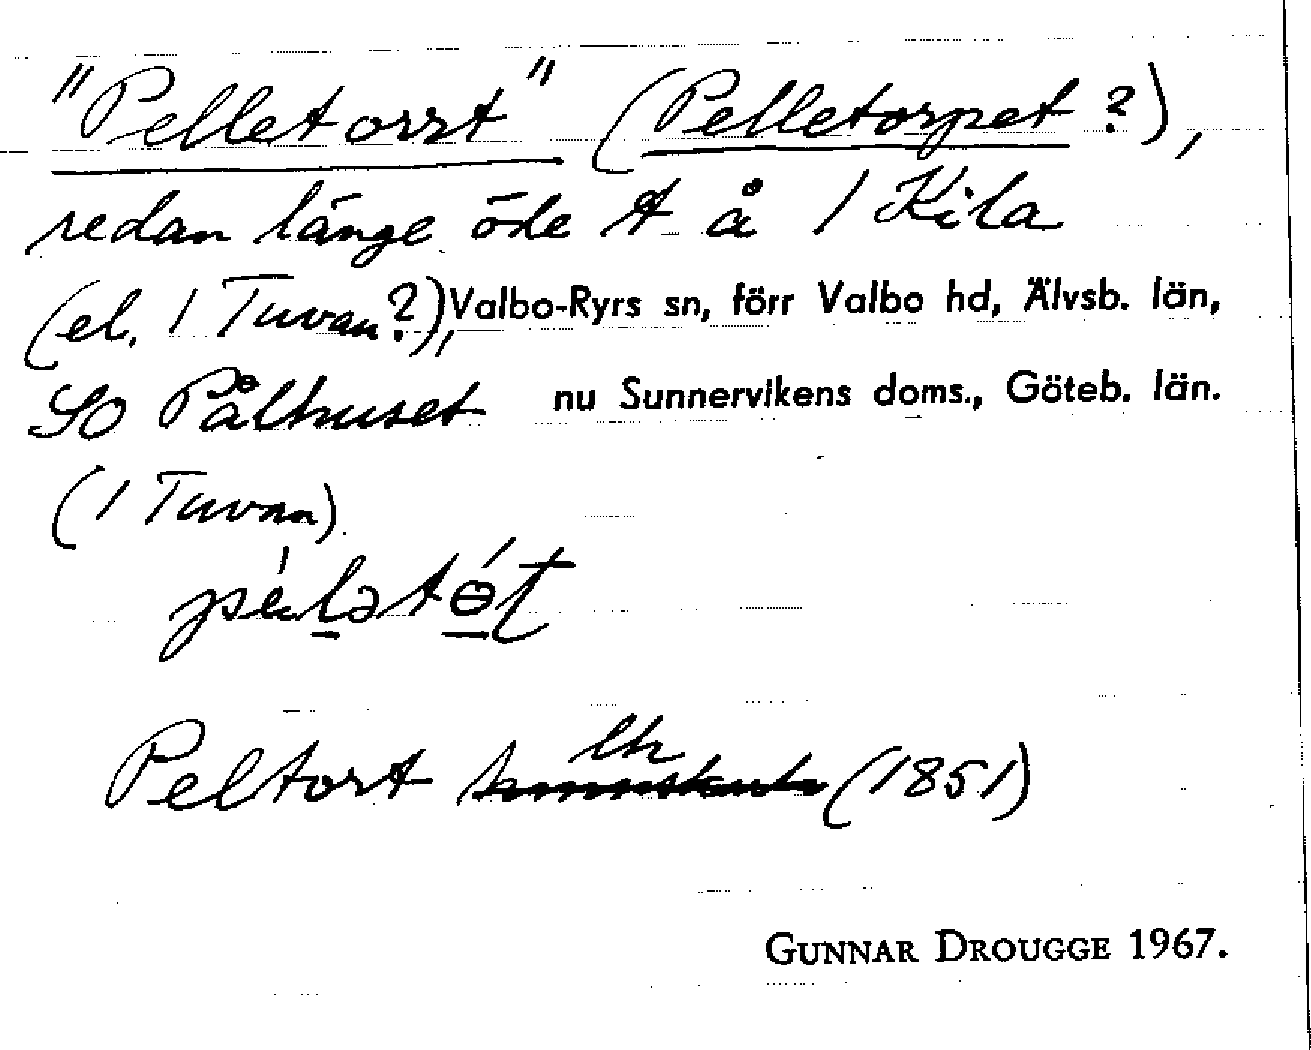 "Pelletorrt" (Pelletorpet?),
redan länge öde t å 1 Kila
(el. 1 Tuvan?), Valbo-Ryrs sn, förr Valbo hd, Älvsb. län,
SO Pålhuset nu Sunnervikens doms., Göteb. län.
(1 Tuvan).
Peltort lh (1851)
GUNNAR DROUGGE 1967.